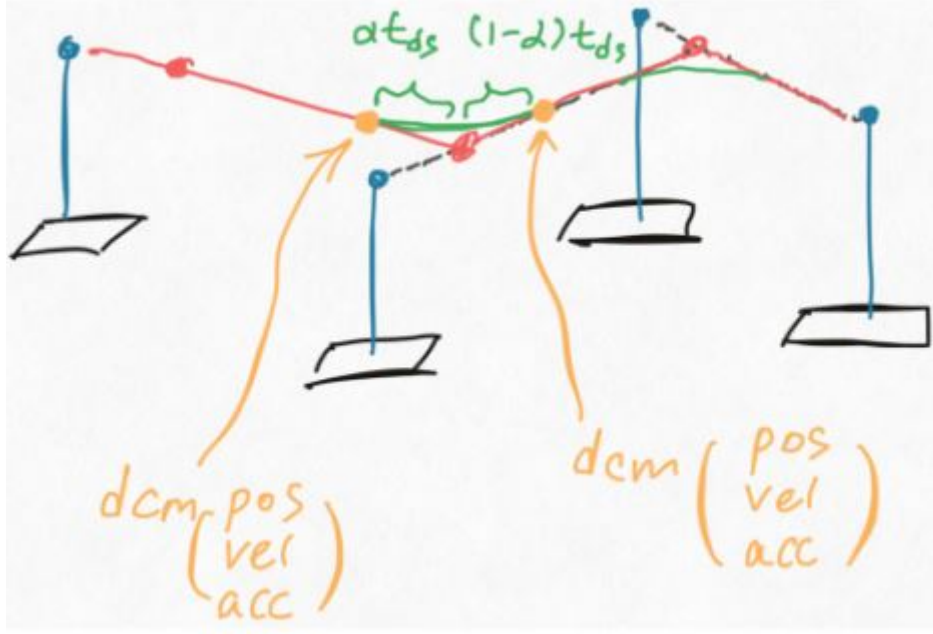 αt_ds (1-α)t_ds
dcm (pos
vel
acc)
dcm (pos
vel
acc)